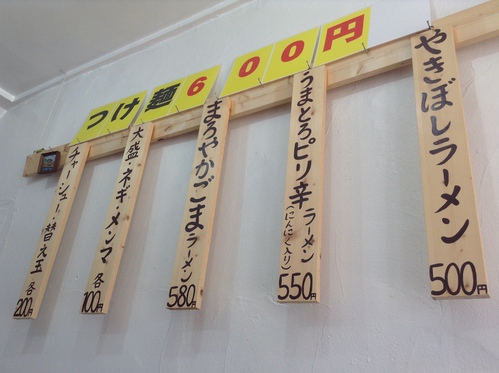 つけ麺600円
やきぼしラーメン 500円
うまとろピリ辛ラーメン(にんにく入り) 550円
まろやかごまラーメン 580円
大盛・ネギ・メンマ 各100円
チャーシュー・替え玉 各200円